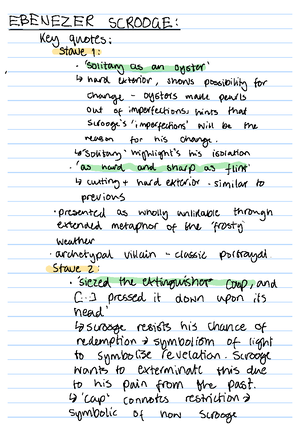 EBENEZER SCROOGE:
Key quotes:
Stave 1:
• 'solitary as an oyster'
↳ hard exterior, shows possibility for
change - oysters made pearls
out of imperfections, hints that
Scrooge's 'imperfections' will be the
reason for his change.
↳ 'solitary' highlight's his isolation
• 'as hard and sharp as flint'
↳ cutting + hard exterior - similar to
previous
• presented as wholly unlikable through
extended metaphor of the 'frosty'
weather
• archetypal villain - classic portrayal
Stave 2:
• 'siezed the extinguisher cap, and
[..] pressed it down upon its
head'
↳ scrooge resists his chance of
redemption → symbolism of light
to symbolise revelation. Scrooge
wants to exterminate this due
to his pain from the past.
↳ 'cap' connotes restriction →
symbolic of how Scrooge